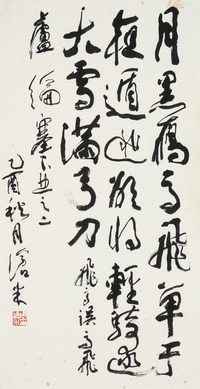 月黑雁高飛單于
夜遁逃欲將輕騎逐
大雪滿弓刀
飛高誤高飛
盧綸塞下曲之二
乙酉秋月